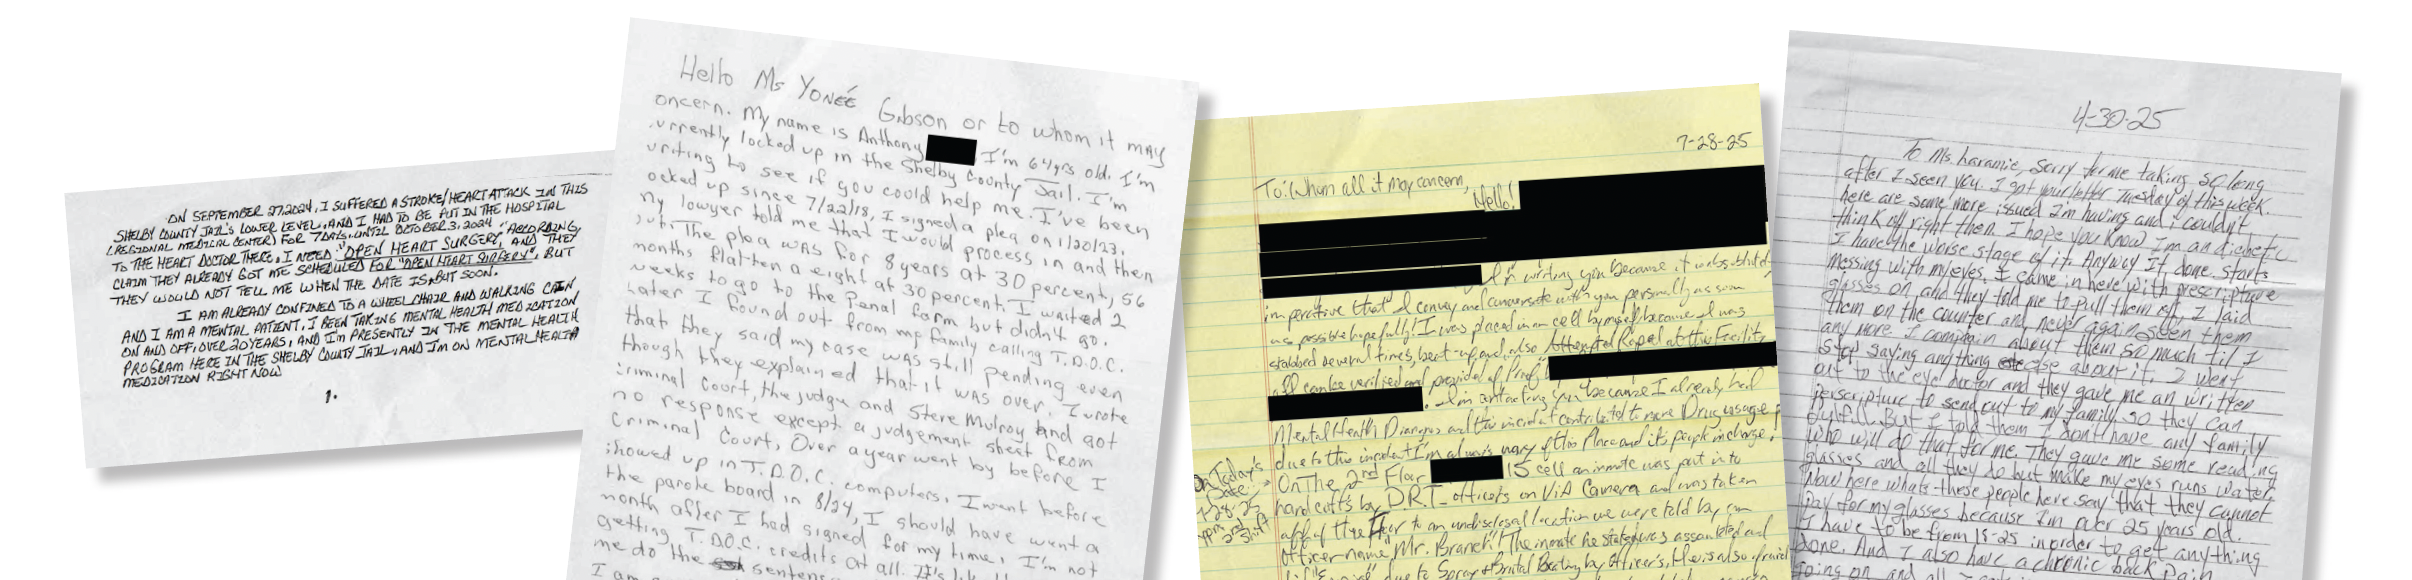 ON SEPTEMBER 27, 2024, I SUFFERED A STROKE/HEART ATTACK IN THIS
SHELBY COUNTY JAIL'S LOWER LEVEL, AND I HAD TO BE PUT IN THE HOSPITAL
(REGIONAL MEDICAL CENTER) FOR 7 DAYS, UNTIL OCTOBER 3, 2024 "ACCORDING
TO THE HEART DOCTOR THERE, I NEED "OPEN HEART SURGERY," AND THEY
CLAIM THEY ALREADY GOT ME SCHEDULED FOR "OPEN HEART SURGERY", BUT
THEY WOULD NOT TELL ME WHEN THE DATE IS, BUT SOON.
I AM ALREADY CONFINED TO A WHEEL CHAIR AND WALKING CAIN,
AND I AM A MENTAL PATIENT, I BEEN TAKING MENTAL HEALTH MEDICATION
ON AND OFF, OVER 20 YEARS, AND I'M PRESENTLY IN THE MENTAL HEALTH
PROGRAM HERE IN THE SHELBY COUNTY JAIL, AND I'M ON MENTAL HEALTH
MEDICATION RIGHT NOW
1.
Hello Ms Yoneé Gibson or to whom it may
oncern. My name is Anthony I'm 64yrs old. I'm
urrently locked up in the Shelby County Jail. I'm
writing to see if you could help me. I've been
ocked up since 7/22/18, I signed a plea on 1/20/23,
my lawyer told me that I would process in and then
out. The plea was for 8 years at 30 percent, 56
months flat then a eight at 30 percent. I waited 2
weeks to go to the Penal farm but didn't go.
later I found out from my family calling T.D.O.C.
that they said my case was still pending even
though they explained that it was over. I wrote
criminal Court, the judge and Steve Mulroy and got
no response except a judgement sheet from
Criminal Court, Over a year went by before I
showed up in T.D.O.C. computers. I went before
the parole board in 8/24, I should have went a
month after I had signed for my time, I'm not
getting T.D.O.C. credits at all. It's like
me do the sentence
I am
7-28-25
To: Whom all it may concern,
Hello!
I'm writing you because it was
imperative that I convey and conversate with you personally as soon
as possible hopefully! I was placed in a cell by myself because I was
stabbed several times, beat-up and, also Attempted Raped at this Facility
all can be verified and provided of Proof!
I'm contacting you because I already had
Mental Health Diangos and the incident contributed to more Drug usage
due to this incident I'm always wary of this Place and its people in charge!
On Today's
Date
7-28-25
2nd shift
On The 2nd Floor 15 cell an inmate was put into
handcuffs by DRT officers on ViA Camera and was taken
off of the Floor to an undisclosal location we were told by an
officer name Mr. Branch! The inmate he states was assaulted and
due to Spray & Brutal Beating by Officer's, He is also afraid
4-30-25
To Ms. haramie, Sorry for me taking so long
after I seen you. I got your letter Tuesday of this week.
here are some more issued I'm having and i couldn't
think of right then. I hope you know Im an diebetic
I have the worse stage of it. Anyway It done starts
messing with my eyes. I came in here with prescripture
glasses on, and they told me to pull them off, I laid
them on the counter and never again seen them
any more. I complain about them so much til I
stop saying anything else about it. I went
out to the eye doctor and they gave me an written
perscripture to send out to my family, so they can
fulfill. But I told them I don't have any family
who will do that for me. They gave me some reading
glasses and all they do but make my eyes runs water
Now here whats these people here say that they cannot
pay for my glasses because I'm over 25 years old.
I have to be from 18-25 inorder to get anything
done. And I also have a chronic back Pain
going on and all